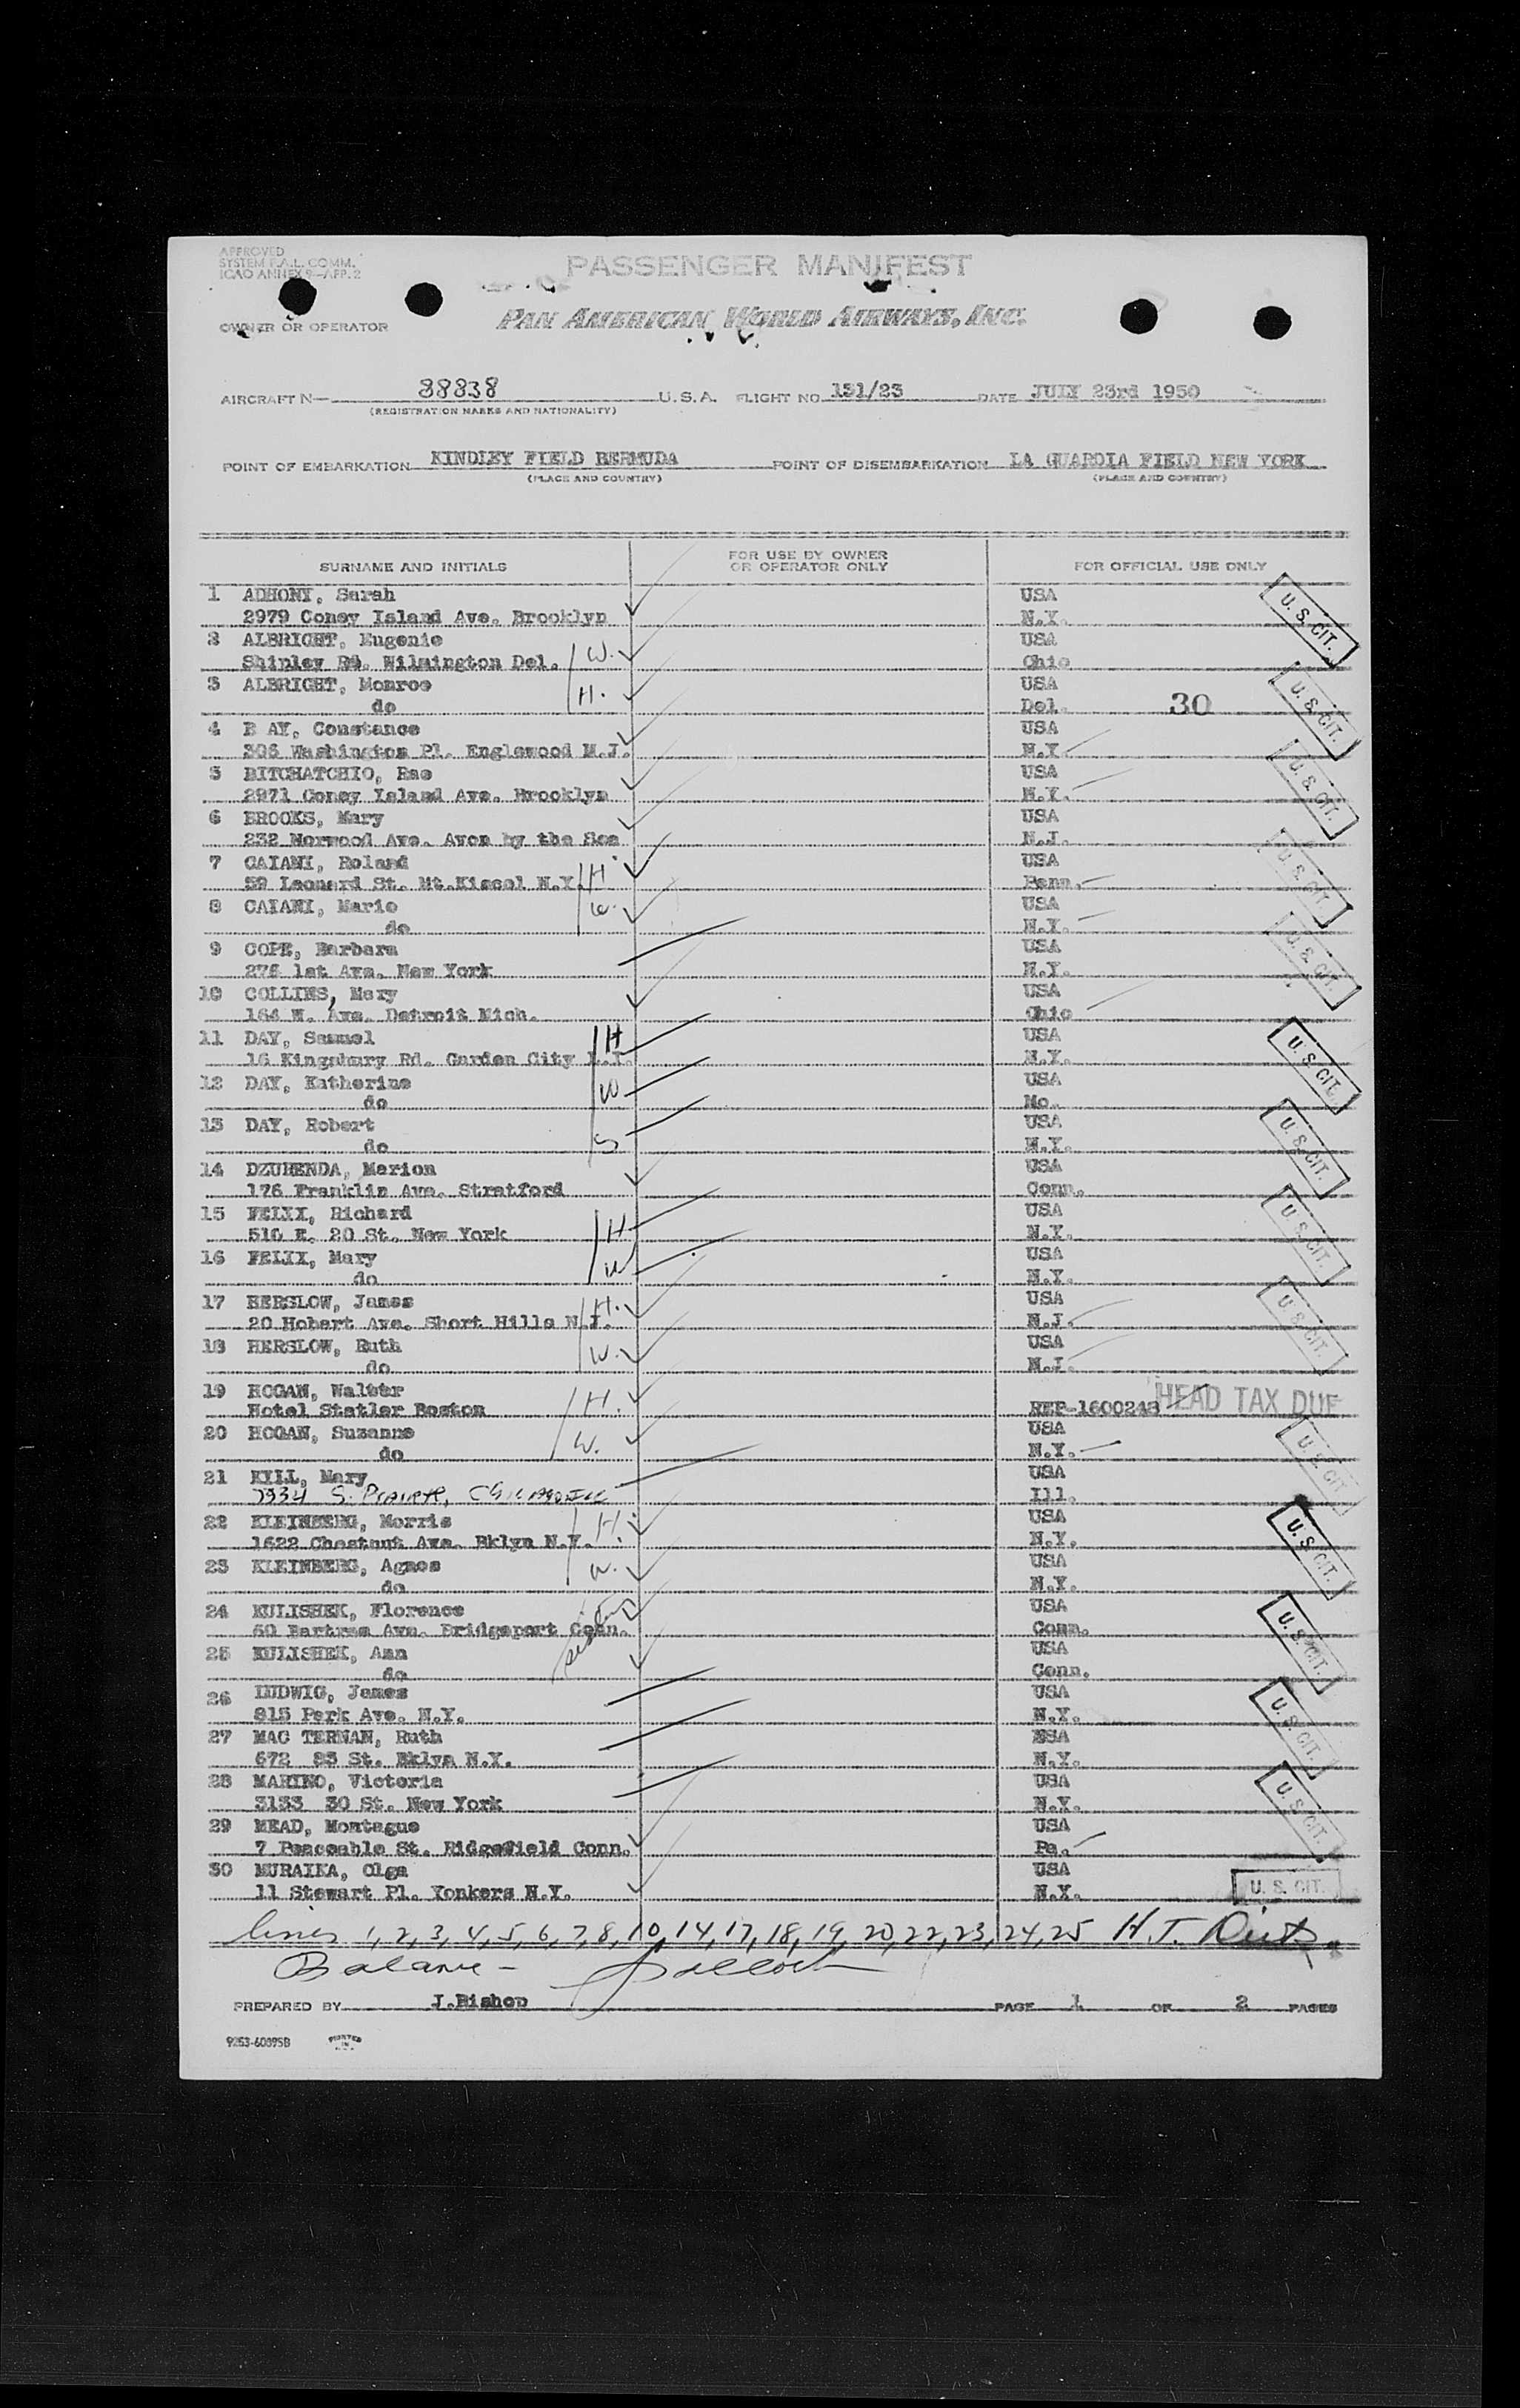 APPROVED
SYSTEM F.A.L. COMM.
ICAO ANNEX 9—APP. 2
PASSENGER MANIFEST
OWNER OR OPERATOR PAN AMERICAN WORLD AIRWAYS, INC.
AIRCRAFT N— 88838 U.S.A. FLIGHT NO. 131/23 DATE JULY 23rd 1950
(REGISTRATION MARKS AND NATIONALITY)
POINT OF EMBARKATION KINDLEY FIELD BERMUDA POINT OF DISEMBARKATION LA GUARDIA FIELD NEW YORK
(PLACE AND COUNTRY) (PLACE AND COUNTRY)
SURNAME AND INITIALS FOR USE BY OWNER OR OPERATOR ONLY FOR OFFICIAL USE ONLY
1 ADHONY, Sarah USA
2979 Coney Island Ave. Brooklyn N.Y. U. S. CIT.
2 ALBRIGHT, Eugenie USA
Shipley Rd. Wilmington Del. W. Ohio
3 ALBRIGHT, Monroe USA
do H. Del. 30 U. S. CIT.
4 B AY, Constance USA
306 Washington Pl. Englewood N.J. N.Y.
5 BITCHATCHIO, Rae USA
2971 Coney Island Ave. Brooklyn N.Y. U. S. CIT.
6 BROOKS, Mary USA
232 Norwood Ave. Avon by the Sea N.J.
7 CAIANI, Roland USA
59 Leonard St. Mt.Kiscol N.Y. H Penn. U. S. CIT.
8 CAIANI, Marie USA
do W. N.Y.
9 COPE, Barbara USA
276 1st Ave. New York N.Y. U. S. CIT.
10 COLLINS, Mary USA
164 W. Ave. Detroit Mich. Ohio
11 DAY, Samuel USA
16 Kingsbury Rd. Garden City L.I. H N.Y. U. S. CIT.
12 DAY, Katherine USA
do W Mo.
13 DAY, Robert USA
do S N.Y. U. S. CIT.
14 DZURENDA, Marion USA
176 Franklin Ave. Stratford Conn.
15 FELIX, Richard USA
510 E. 20 St. New York H N.Y. U. S. CIT.
16 FELIX, Mary USA
do W N.Y.
17 HERSLOW, James USA
20 Hobart Ave. Short Hills N.J. H. N.J. U. S. CIT.
18 HERSLOW, Ruth USA
do W. N.J.
19 HOGAN, Walter
Hotel Statler Boston H. REP-1600248 HEAD TAX DUE
20 HOGAN, Suzanne USA
do W. N.Y. U. S. CIT.
21 KYLL, Mary USA
7934 S. Prairie, Chicago Ill Ill.
22 KLEINBERG, Morris USA
1622 Chestnut Ave. Bklyn N.Y. H. N.Y. U. S. CIT.
23 KLEINBERG, Agnes USA
do W. N.Y.
24 KULISHEK, Florence USA
60 Bartram Ave. Bridgeport Conn. Conn. U. S. CIT.
25 KULISHEK, Ann USA
do Conn.
26 LUDWIG, James USA
815 Park Ave. N.Y. N.Y. U. S. CIT.
27 MAC TERNAN, Ruth USA
672 83 St. Bklyn N.Y. N.Y.
28 MARINO, Victoria USA
3133 30 St. New York N.Y. U. S. CIT.
29 MEAD, Montague USA
7 Peaceable St. Ridgefield Conn. Pa.
30 MURAIKA, Olga USA
11 Stewart Pl. Yonkers N.Y. N.Y. U. S. CIT.
lines 1, 2, 3, 4, 5, 6, 7, 8, 10, 14, 17, 18, 19, 20, 22, 23, 24, 25 H.T.
Balance -
PREPARED BY J.Bishop PAGE 1 OF 2 PAGES
9253-60895B PRINTED IN